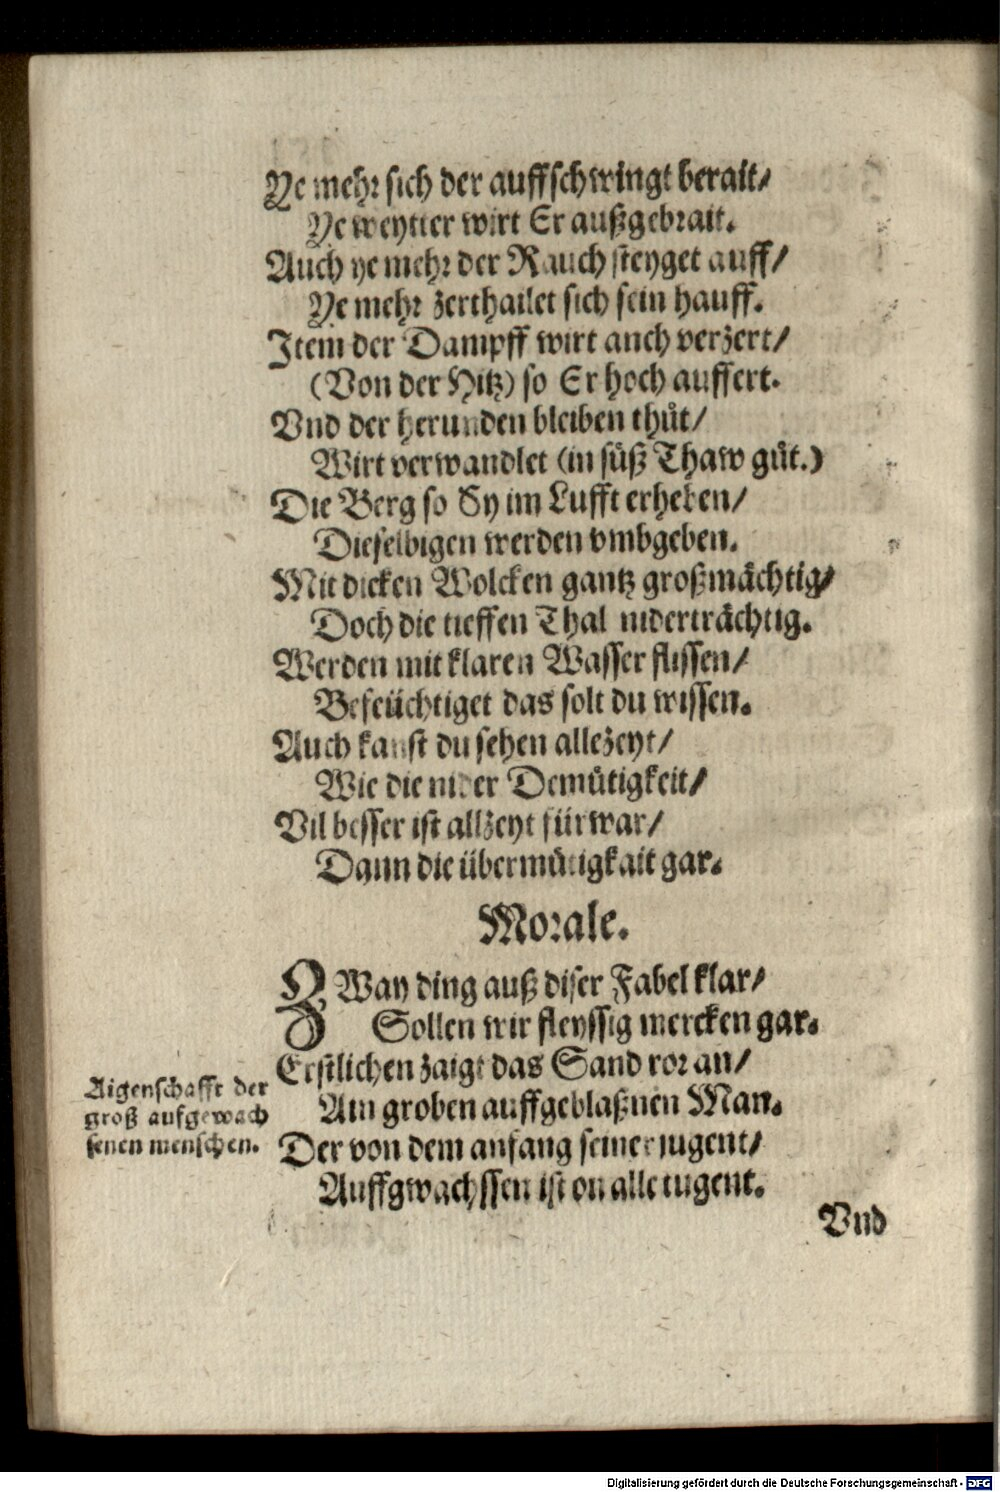 Ye mehr sich der auffschwingt berait/
Ye weytter wirt Er außgebrait.
Auch ye mehr der Rauch steyget auff/
Ye mehr zerthailet sich sein hauff.
Item der Dampff wirt auch verzert/
(Von der Hitz) so Er hoch auffert.
Vnd der herunden bleiben thůt/
Wirt verwandlet (in süß Thaw gůt.)
Die Berg so Sy im Lufft erheben/
Dieselbigen werden vmbgeben.
Mit dicken Wolcken gantz großmächtig/
Doch die tieffen Thal niderträchtig.
Werden mit klaren Wasser flissen/
Befeüchtiget das solt du wissen.
Auch kanst du sehen allezeyt/
Wie die nider Demütigkeit/
Vil besser ist allzeyt fürwar/
Dann die übermütigkait gar.
Morale.
ZWay ding auß diser Fabel klar/
Sollen wir fleyssig mercken gar.
Erstlichen zaigt das Sand vor an/
Aigenschafft der
groß aufgewach
senen menschen.
Am groben auffgeblaßnen Man.
Der von dem anfang seiner jugent/
Auffgwachssen ist on alle tugent.
Vnd
Digitalisierung gefördert durch die Deutsche Forschungsgemeinschaft - DFG